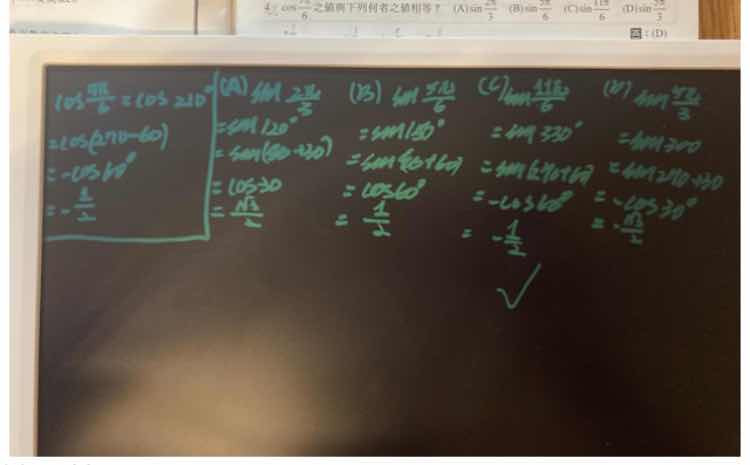 4. cos 7π/6 之值與下列何者之值相等? (A) sin 2π/3 (B) sin 5π/6 (C) sin 11π/6 (D) sin 5π/3
答:(D)
cos 7π/6 = cos 210°
= cos(270-60)
= -cos60°
= -1/2
(A) sin 2π/3
= sin 120°
= sin(90+30)
= cos30
= √3/2
(B) sin 5π/6
= sin 150°
= sin(90+60)
= cos60°
= 1/2
(C) sin 11π/6
= sin 330°
= sin(270+60)
= -cos60°
= -1/2
✓
(D) sin 5π/3
= sin 300
= sin 270+30
= -cos30°
= -√3/2